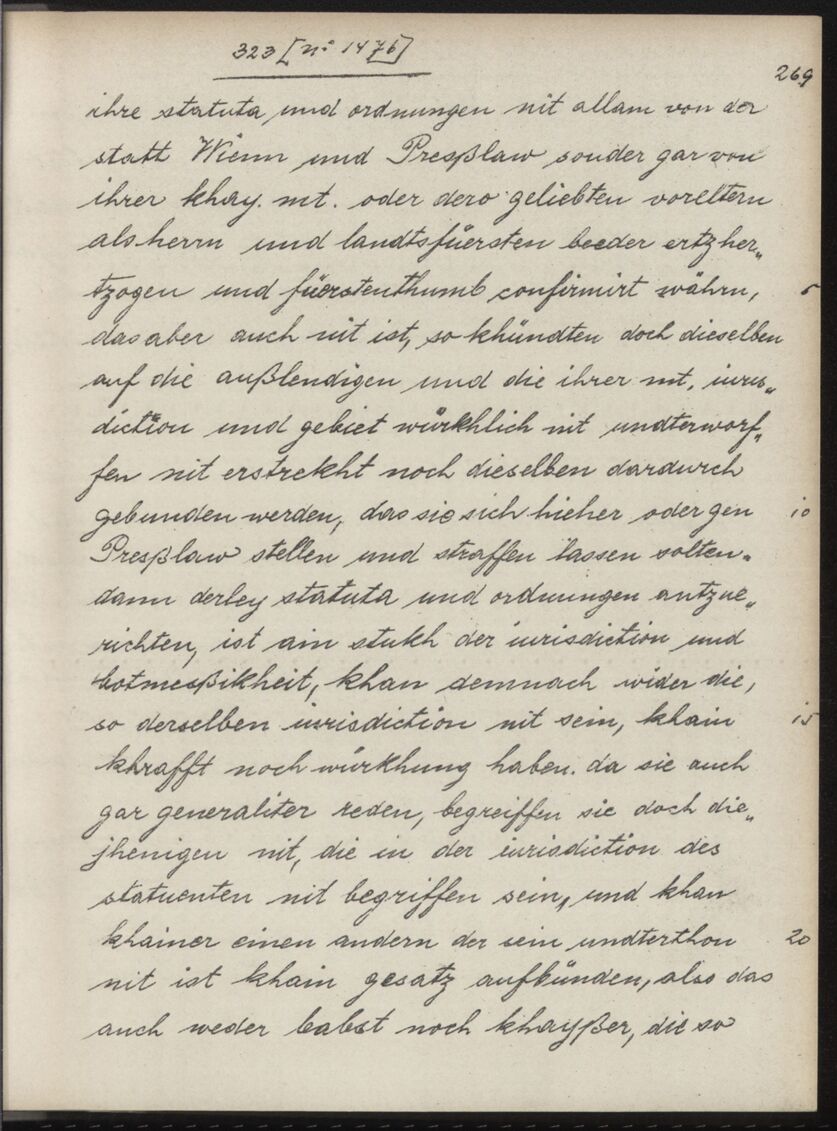 323 [nº 1476]
269
ihre statuta und ordnungen nit allam von der
statt Wienn und Preßlaw sonder gar von
ihrer khay. mt. oder dero geliebten voreltern
als herrn und landtsfüersten beeder ertzher„
tzogen und füerstenthumb confirmirt währn, 5
das aber auch nit ist, so khündten doch dieselben
auf die außlendigen und die ihrer mt. iuris„
diction und gebiet würkhlich nit undterworf„
fen nit erstrekht noch dieselben dardurch
gebunden werden, das sie sich hieher oder gen 10
Presßlaw stellen und straffen lassen solten.
dann derley statuta und ordnungen antzue„
richten, ist ain stukh der iurisdiction und
botmeßikheit, khan demnach wider die,
so derselben iurisdiction nit sein, khain 15
khrafft noch würkhung haben. da sie auch
gar generaliter reden, begreiffen sie doch die„
jhenigen nit, die in der iurisdiction des
statuenten nit begriffen sein, und khan
khainer einen andern der sein undterthon 20
nit ist khain gesatz aufbünden, also das
auch weder babst noch khayßer, die so